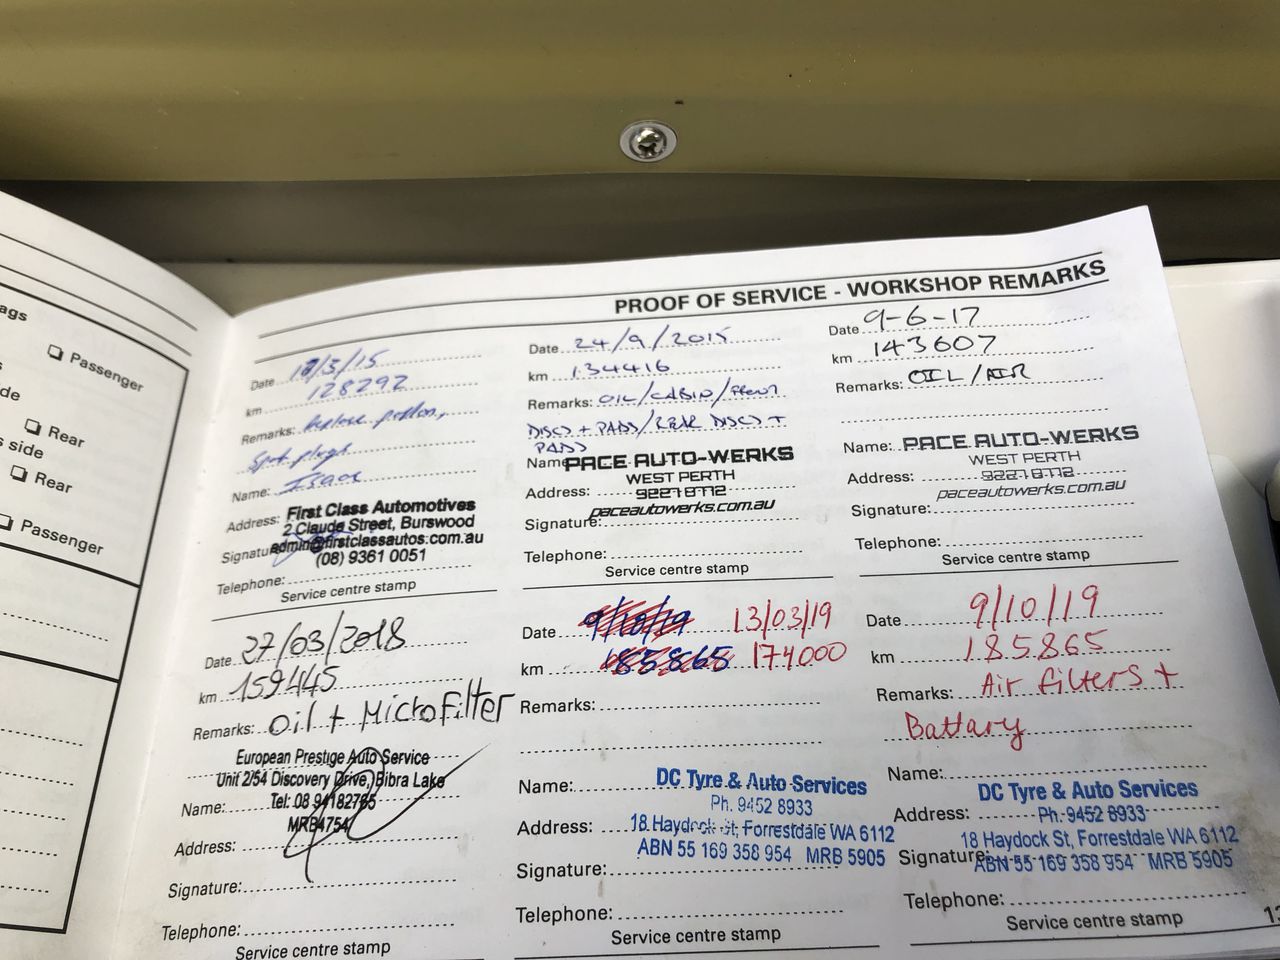 ags
Passenger
de
Rear
s side
Rear
Passenger
PROOF OF SERVICE - WORKSHOP REMARKS
Date 18/3/15
km 128292
Remarks: Replace pollen,
Spark plugs
Name: Isaac
Address: First Class Automotives
2 Claude Street, Burswood
Signature: admin@firstclassautos.com.au
(08) 9361 0051
Telephone:
Service centre stamp
Date 24/9/2015
km 134416
Remarks: OIL/CABIN/FRONT
DISCS + PADS/REAR DISCS +
PADS
Name: PACE AUTO-WERKS
WEST PERTH
Address: 9227 8772
paceautowerks.com.au
Signature:
Telephone:
Service centre stamp
Date 9-6-17
km 143607
Remarks: OIL/AIR
Name: PACE AUTO-WERKS
WEST PERTH
Address: 9227 8772
paceautowerks.com.au
Signature:
Telephone:
Service centre stamp
Date 27/03/2018
km 159445
Remarks: Oil + MicroFilter
European Prestige Auto Service
Unit 2/54 Discovery Drive, Bibra Lake
Name: Tel: 08 94182765
MRB4754
Address:
Signature:
Telephone:
Service centre stamp
Date 9/10/19 13/03/19
km 185865 174000
Remarks:
Name: DC Tyre & Auto Services
Ph. 9452 8933
Address: 18 Haydock St, Forrestdale WA 6112
ABN 55 169 358 954 MRB 5905
Signature:
Telephone:
Service centre stamp
Date 9/10/19
km 185865
Remarks: Air filters +
Battary
Name:
DC Tyre & Auto Services
Address: Ph. 9452 8933
18 Haydock St, Forrestdale WA 6112
Signature: ABN 55 169 358 954 MRB 5905
Telephone:
Service centre stamp